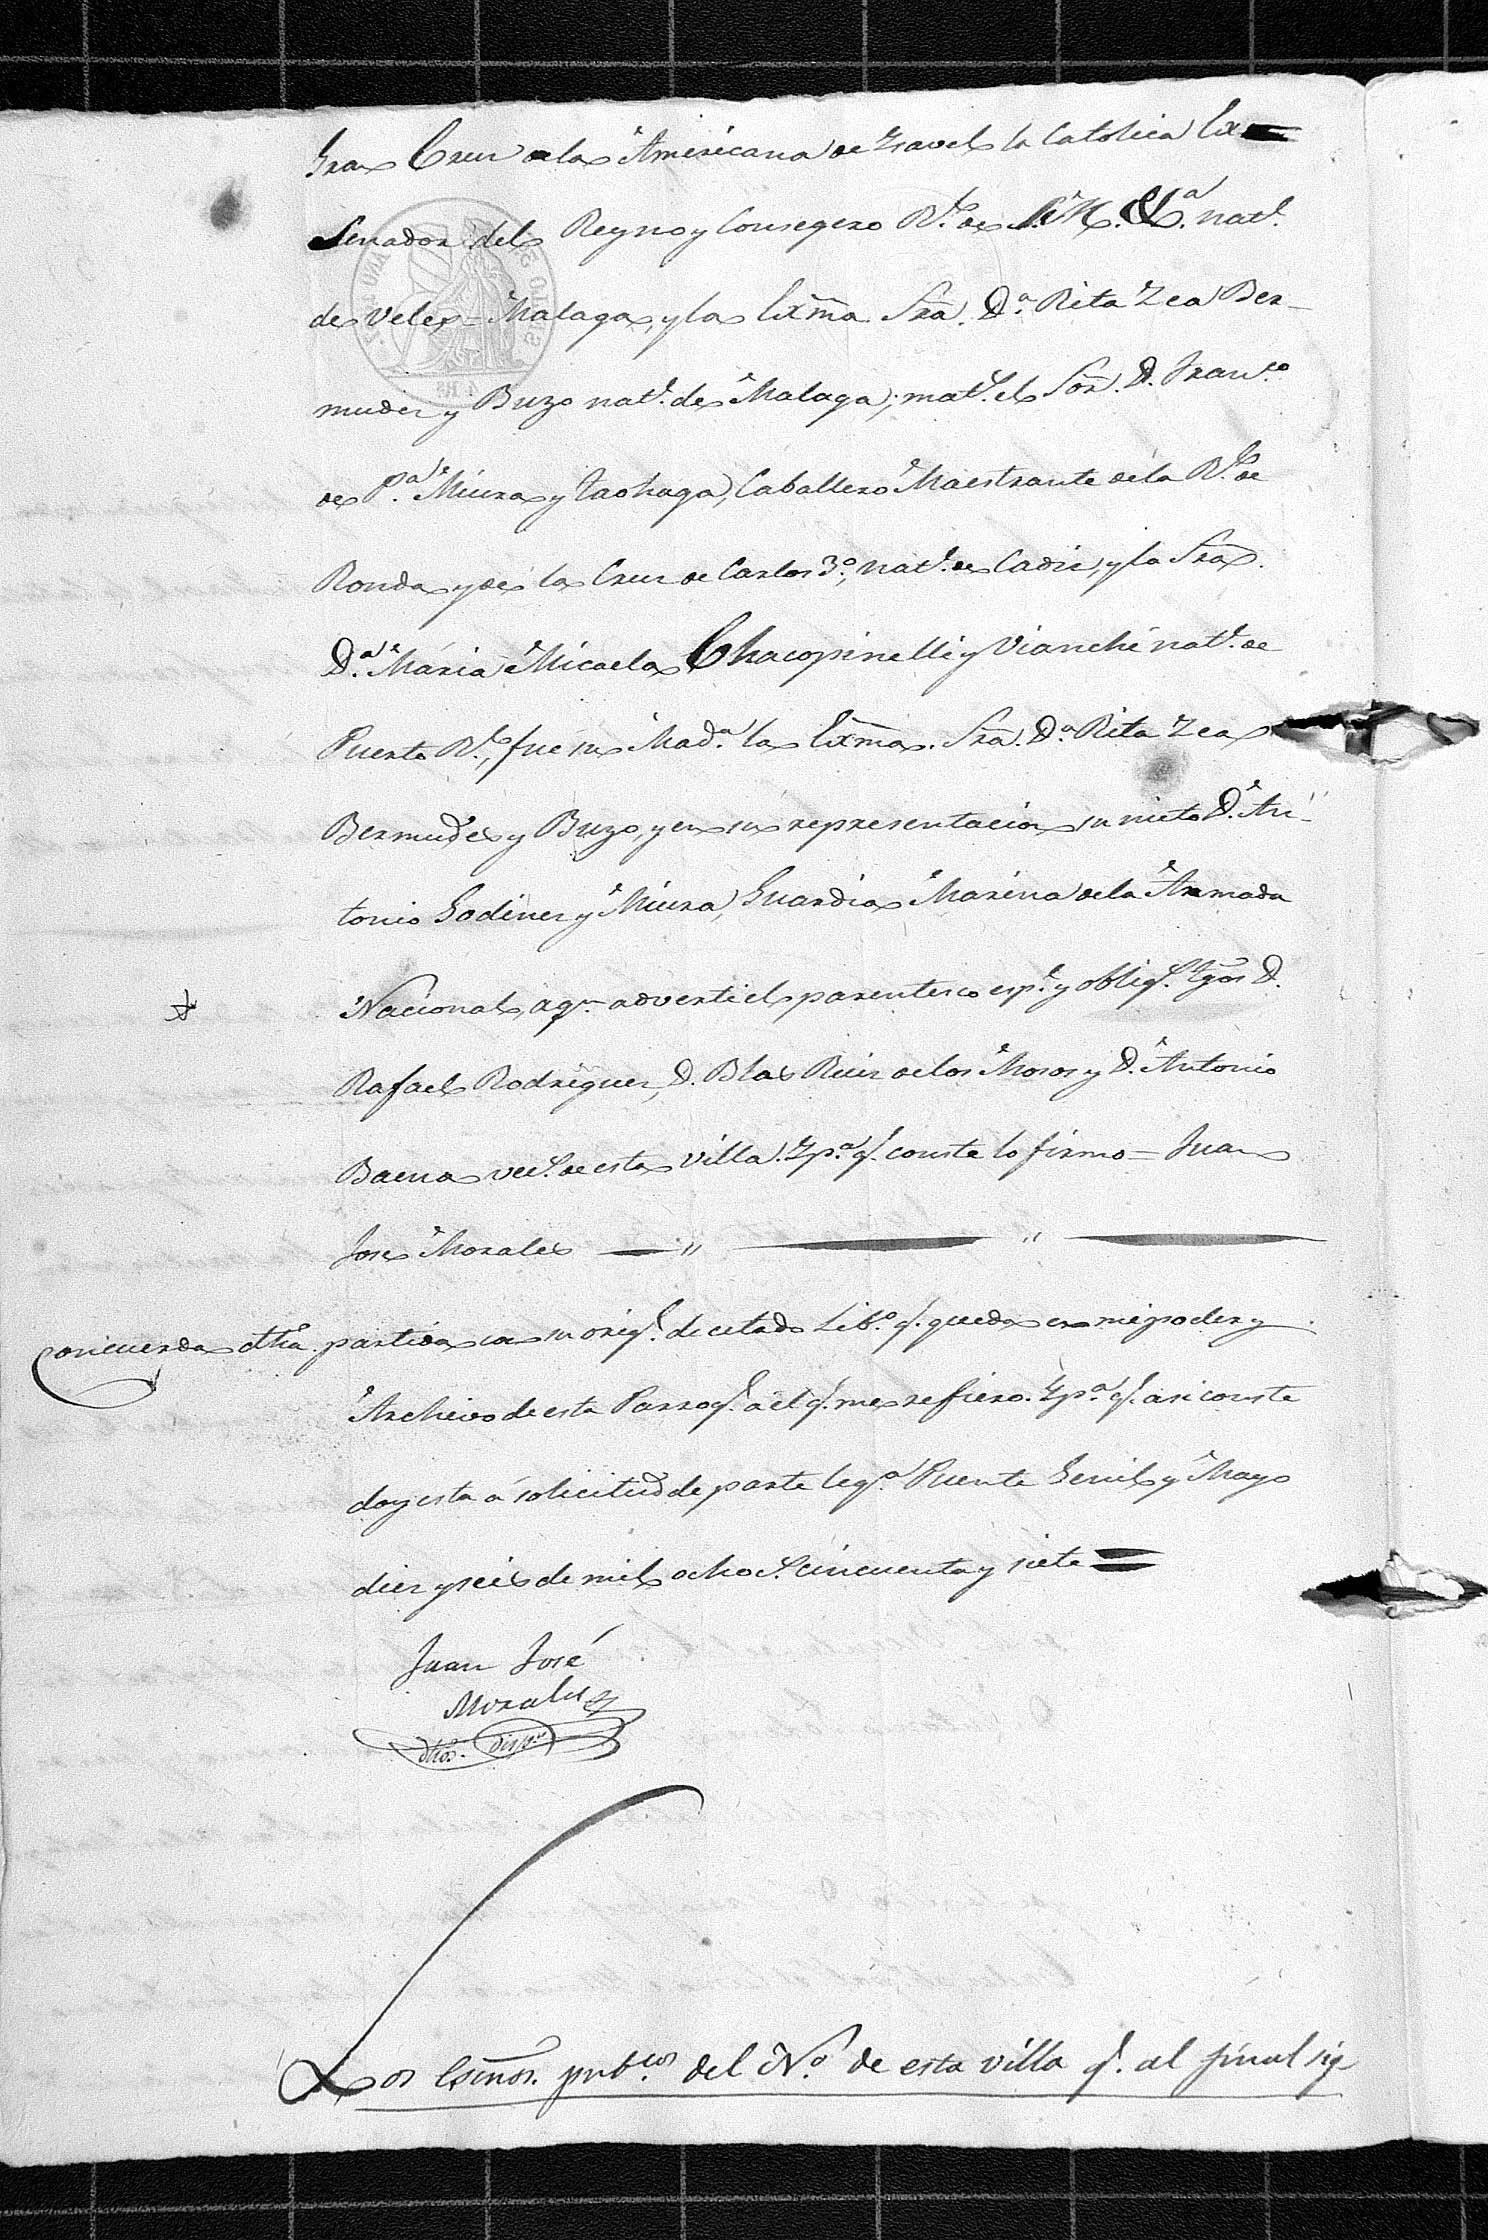 Gran Cruz de la Americana de Ysavel la Catolica Ex
Senador del Reyno y Consegero Rl. de S. M. &a. natl.
de Velez-Malaga, y la Exma. Sra. Da. Rita Zea Ber-
mudez y Buzo natl. de Malaga; matl. el Sor. D. Franco.
de Pa. Miura y Taohaga, Caballero Maestrante de la Rl. de
Ronda y de la Cruz de Carlos 3o., natl. de Cadiz, y la Sra.
Da. Maria Micaela Chacopinelli y Vianchi natl. de
Puerto Rl., fue su Mada. la Exma. Sra. Da. Rita Zea
Bermudez y Buzo, y en su representacion su nieto D. An-
tonio Godinez y Miura, Guardia Marina de la Armada
Nacional, a qn. adverti el parentesco espl. y obligs. Tgos D.
Rafael Rodriguez, D. Blas Ruiz de los Mosos y D. Antonio
Baena vecs. de esta villa. Y pa. q. conste lo firmo = Juan
Jose Morales
Concuerda dha. partida con su origl. de citado Libo. q. queda en mi poder y
Archivo de esta Parroql. a el q. me refiero. Y pa. q. asi conste
doy esta a solicitud de parte lega. Puente Genil y Mayo
diez y seis de mil ochocs. cincuenta y siete =
Juan José
Morales
dhos. disps.
Los Esnos. pubcos. del No. de esta villa q. al final sig-